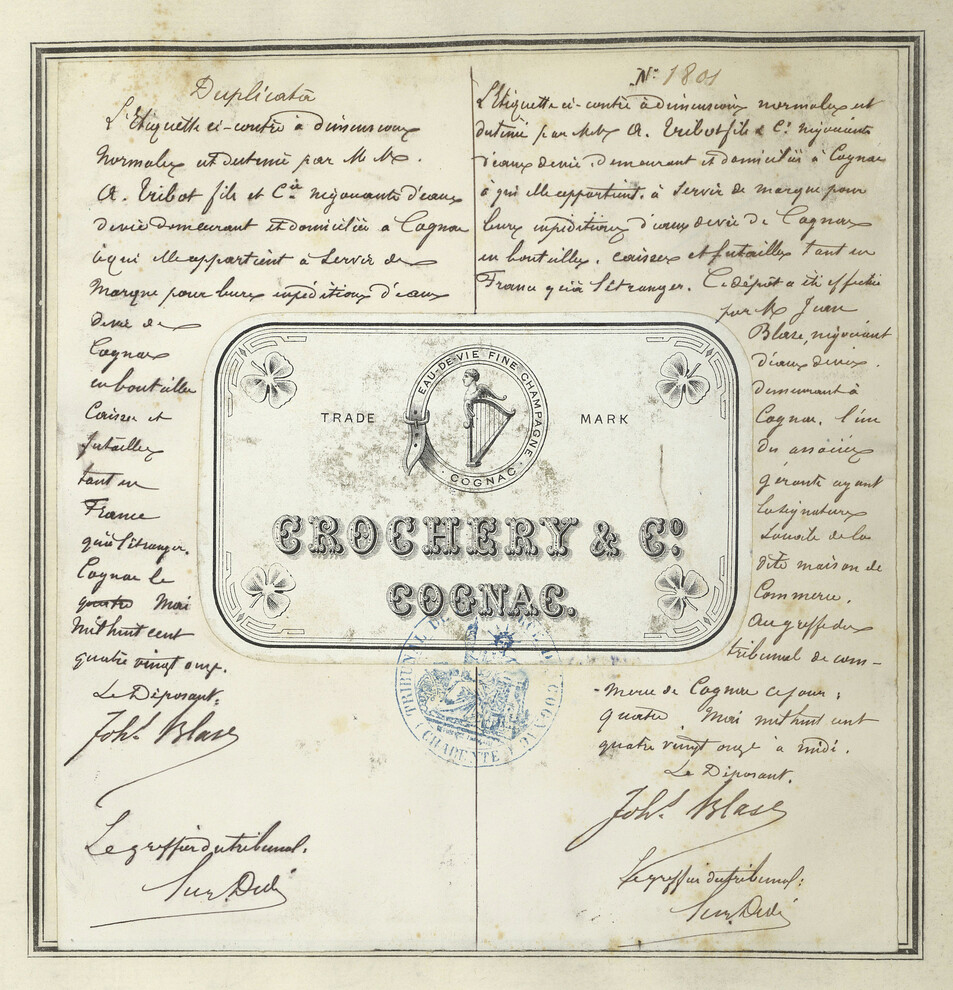 Duplicata
L'Etiquette ci-contre à dimensions
normales est destinée par M Mrs.
A. Tribot fils et Cie négociants d'eaux
devie demeurant et domiciliés à Cognac
à qui elle appartient à Servir de
Marque pour leurs expéditions d'eaux
devie de
Cognac
en bouteilles
Caisses et
futailles
tant en
France
qu'à l'étranger.
Cognac le
quatre Mai
mil huit cent
quatre vingt onze.
Le Déposant:
Joh.s Blase
Le greffier du tribunal.
No 1801
L'Etiquette ci-contre à dimensions normales est
destinée par M.Mrs A. Tribot fils & Ce négociants
d'eaux devie, demeurant et domiciliés à Cognac
à qui elle appartient, à servir de marque pour
leurs expéditions d'eaux devie de Cognac
en bouteilles, caisses et futailles tant en
France qu'à l'étranger. Ce dépôt a été effectué
par M Jean
Blase, négociant
d'eaux devie,
demeurant à
Cognac, l'un
des associés
gérants ayant
la signature
Sociale de la
dite maison de
Commerce.
Au greffe du
tribunal de com-
-merce de Cognac ce jour:
quatre Mai mil huit cent
quatre vingt onze à midi.
Le Déposant.
Joh.s Blase
Le greffier du tribunal:
EAU-DE-VIE FINE CHAMPAGNE
COGNAC
TRADE MARK
CROCHERY & Co.
COGNAC.
TRIBUNAL DE COGNAC
CHARENTE